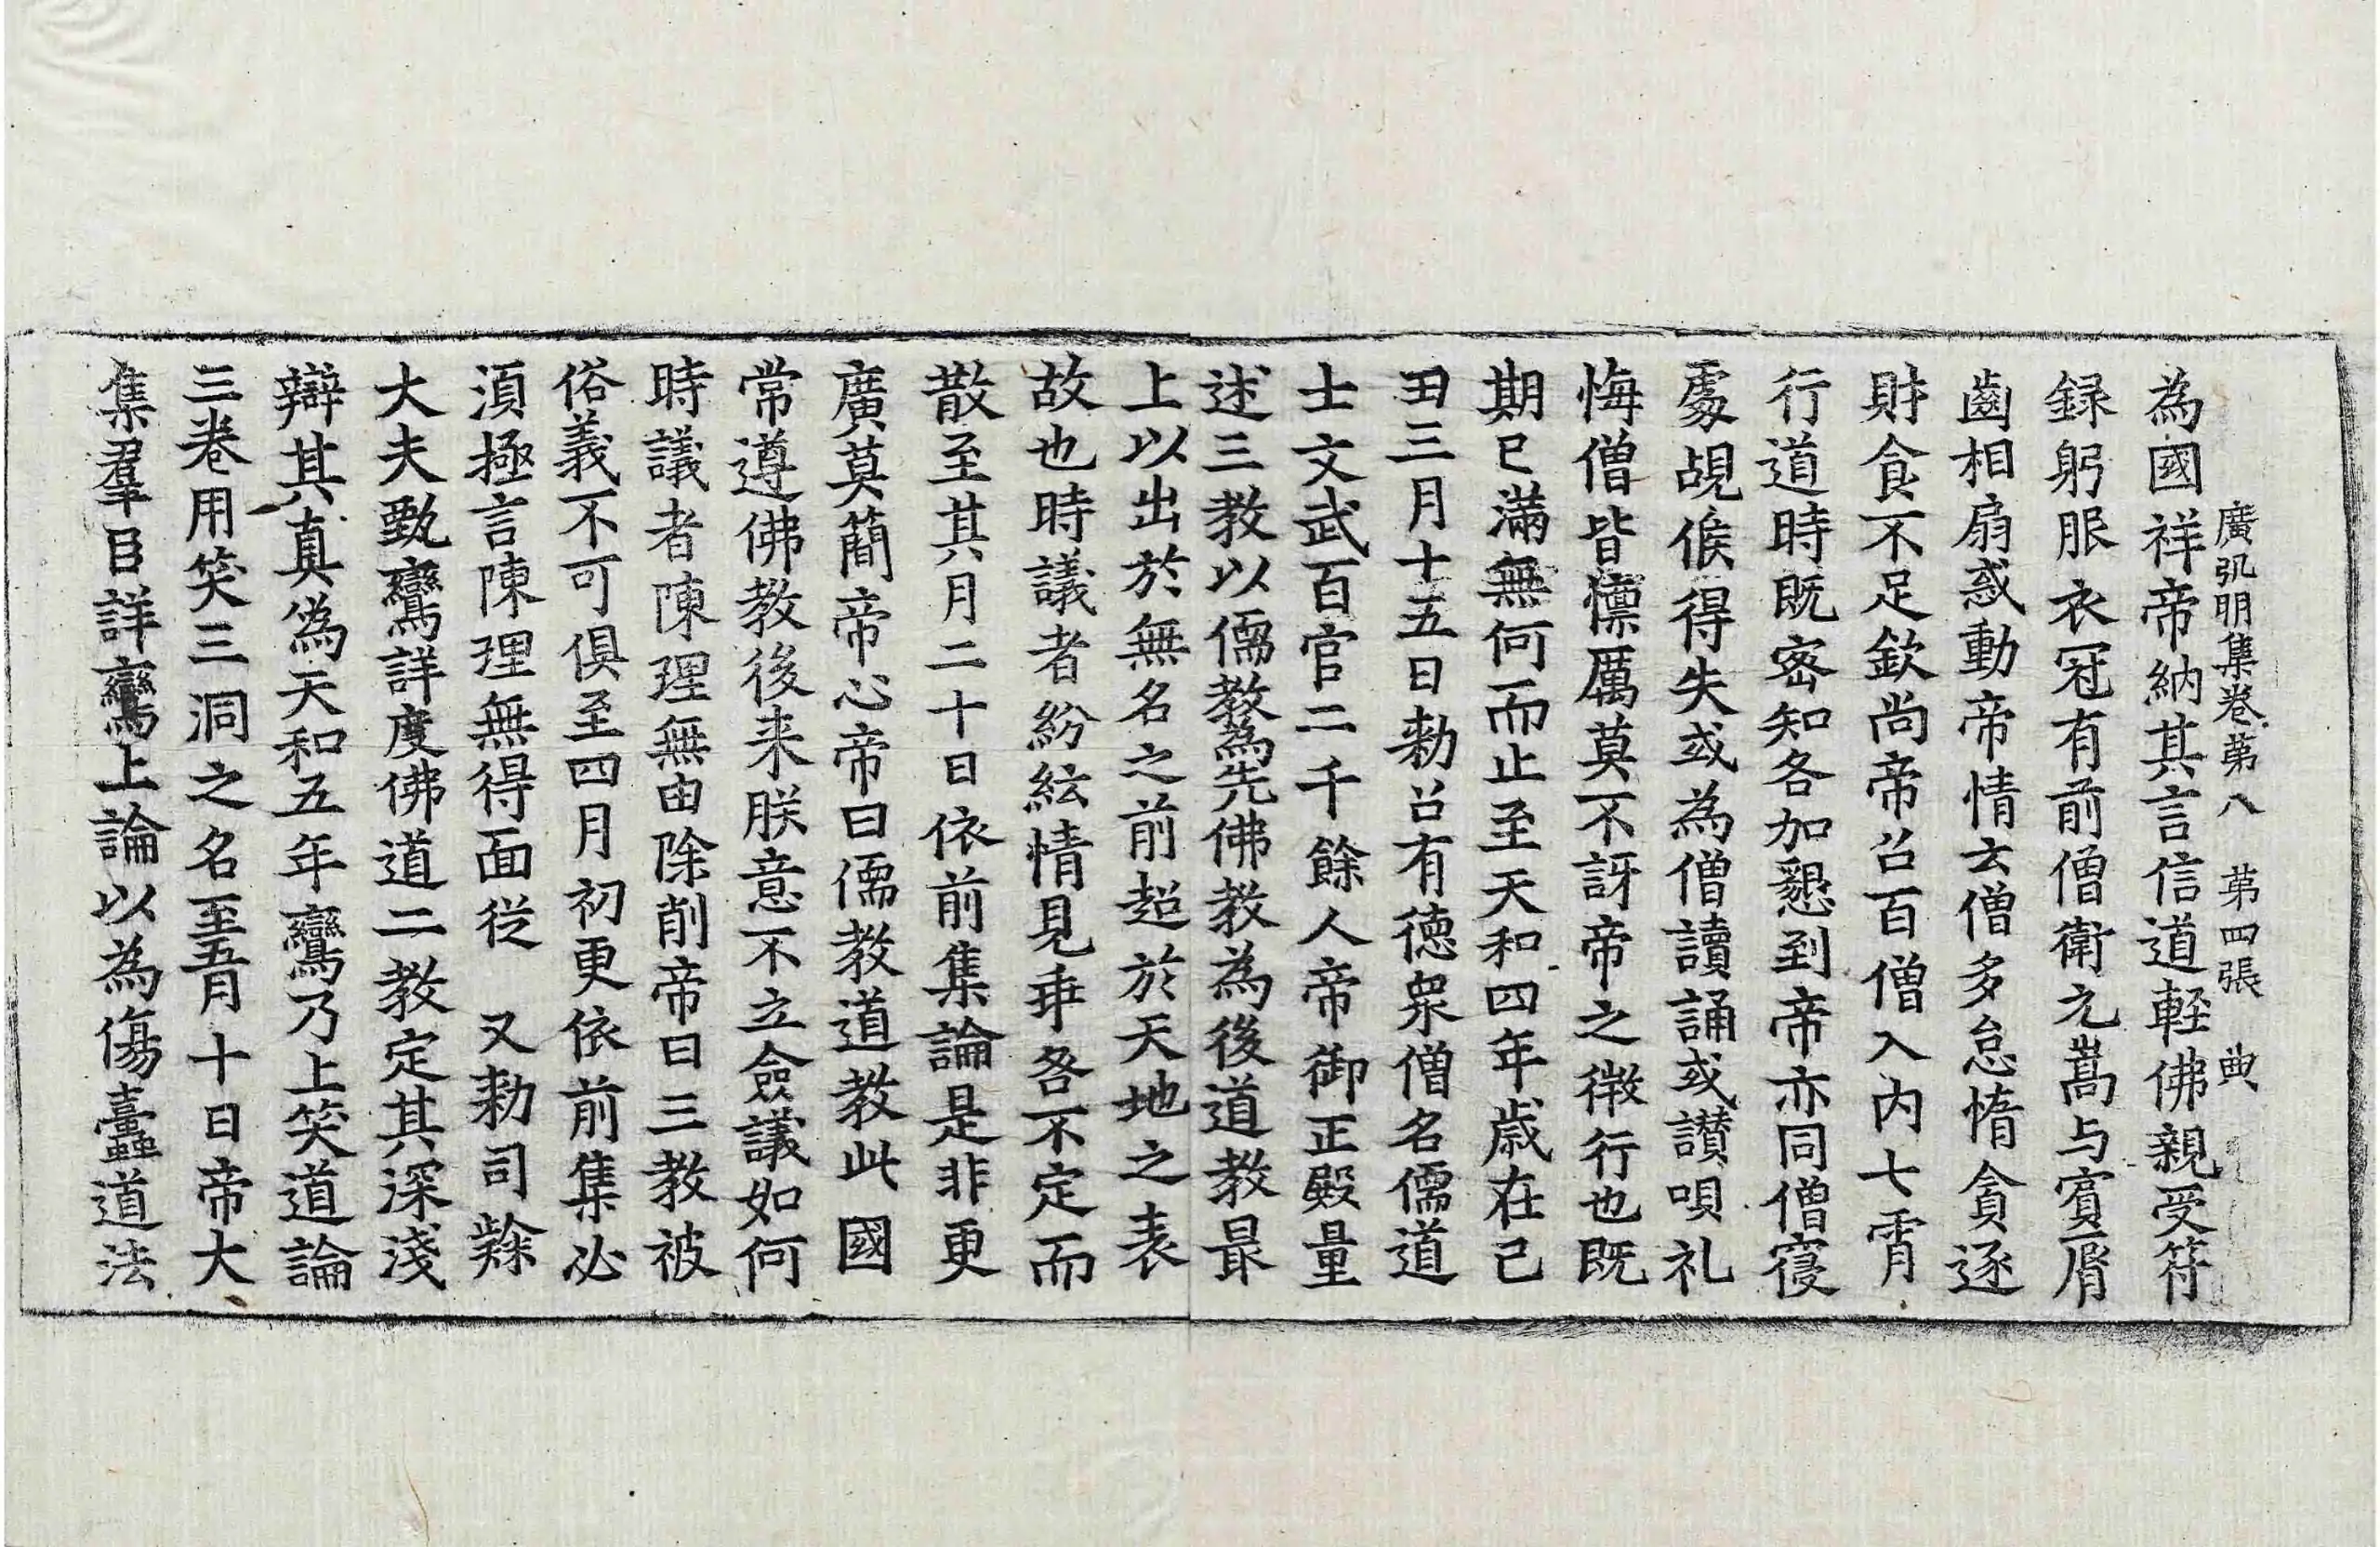 廣弘明集卷第八　第四張　典
為國祥帝納其言信道輕佛親受符
録躬服衣冠有前僧衛元嵩与賓脣
齒相扇惑動帝情云僧多怠惰貪逐
財食不足欽尚帝召百僧入內七霄
行道時既密知各加懇到帝亦同僧寢
處覘候得失或為僧讀誦或讃唄礼
悔僧皆懍厲莫不訝帝之徴行也既
期已滿無何而止至天和四年歲在己
丑三月十五日勑召有德衆僧名儒道
士文武百官二千餘人帝御正殿量
述三教以儒教為先佛教為後道教最
上以出於無名之前超於天地之表
故也時議者紛紜情見乖咎不定而
散至其月二十日依前集論是非更
廣莫簡帝心帝曰儒教道教此國
常遵佛教後来朕意不立僉議如何
時議者陳理無由除削帝曰三教被
俗義不可俱至四月初更依前集必
須極言陳理無得面從　又勑司隸
大夫甄鸞詳度佛道二教定其深淺
辯其真偽天和五年鸞乃上笑道論
三卷用笑三洞之名至五月十日帝大
集羣臣詳鸞上論以為傷蠹道法